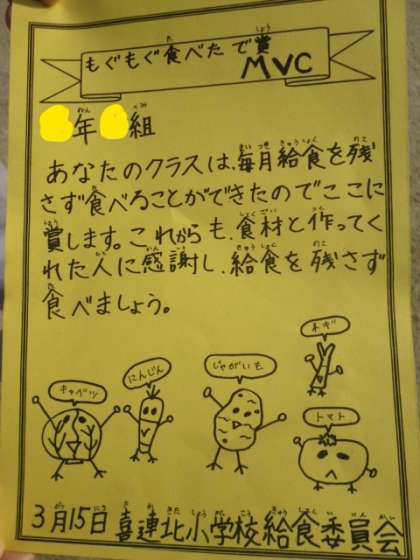 もぐもぐ食べたで賞
MVC
年 組
あなたのクラスは、毎月給食を残
さず食べることができたのでここに
賞します。これからも、食材と作ってく
れた人に感謝し、給食を残さず
食べましょう。
ネギ
じゃがいも
にんじん
キャベツ
トマト
3月15日 喜連北小学校給食委員会